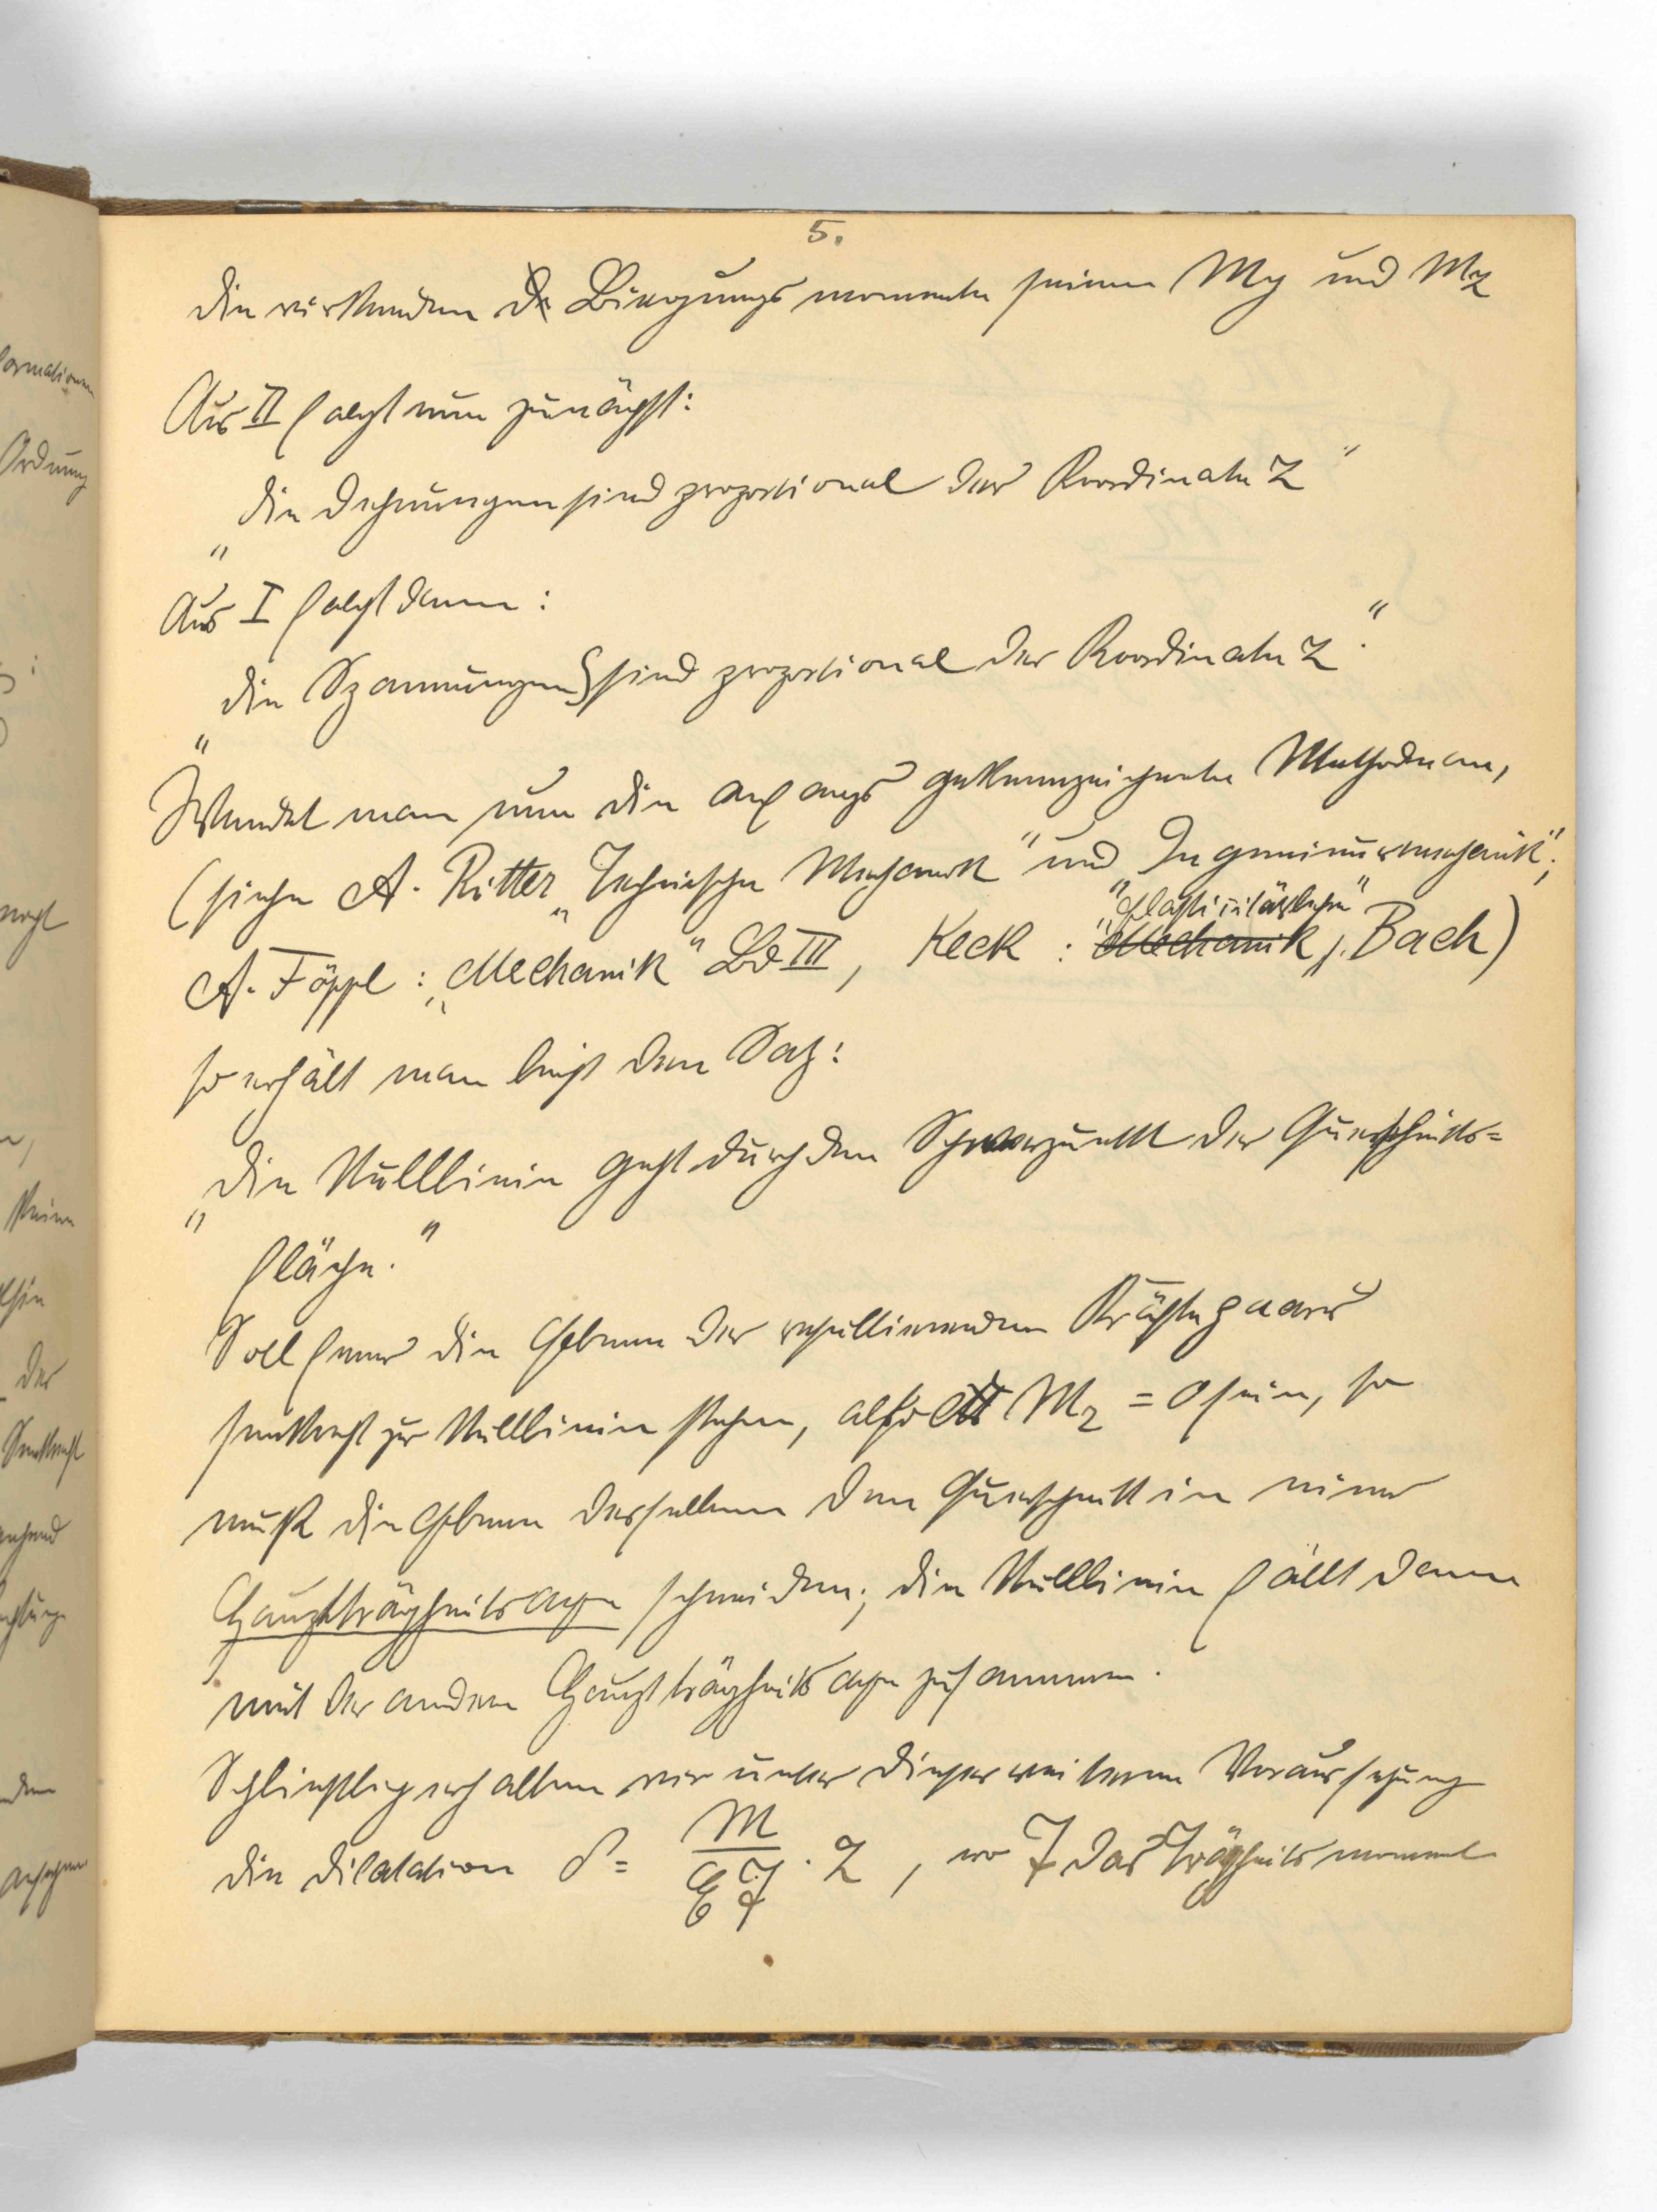 5.
die wirkenden Biegungsmomente seien My und Mz
Aus II folgt nun zunächst:
„die Dehnungen sind proportional der Koordinate z“
Aus I folgt dann:
„die Spannungen S sind proportional der Koordinate z.“
Wendet man nun die anfangs gekennzeichnete Methode an,
(siehe A. Ritter „Technische Mechanik“ und Ingenieurmechanik“;
A. Föppl: „Mechanik“ Bd III, Keck: Mechanik, „Elastizitätslehre“ Bach)
so erhält man leicht den Satz:
„die Nulllinie geht durch den Schwerpunkt der Querschnitts=
fläche.“
Soll ferner die Ebene der resultierenden Kräftepaare
senkrecht zur Nulllinie stehen, also Mz = 0 sein, so
muß die Ebene derselben den Querschnitt in einer
Hauptträgheitsaxe schneiden; die Nulllinie fällt dann
mit der andern Hauptträgheitsaxe zusammen.
Schließlich erhalten wir unter dieser weiteren Voraussetzung
die Dilatation δ = M / E J · z, wo J das Trägheitsmoment